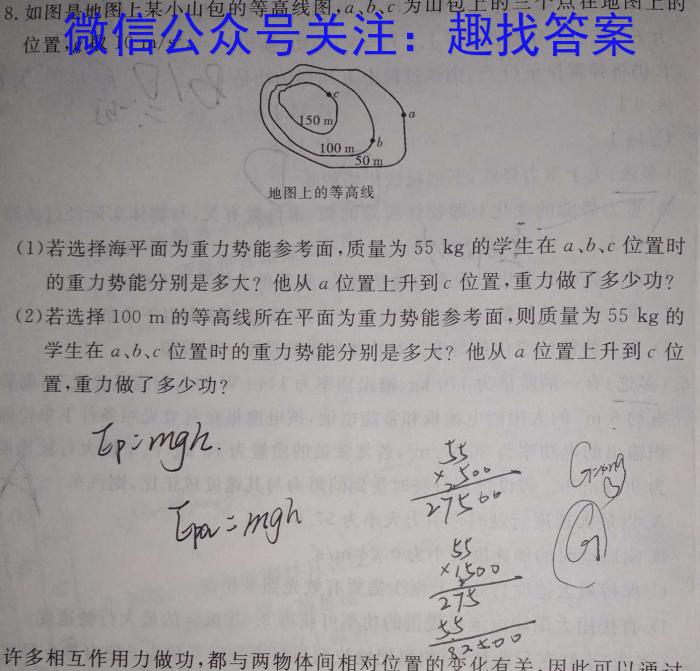 8. 如图是地图上某小山包的等高线图,a、b、c 为山包上的三个点在地图上的
位置,g取 10 m/s
微信公众号关注：趣找答案
c
150 m
a
b
100 m
50 m
地图上的等高线
(1)若选择海平面为重力势能参考面,质量为 55 kg 的学生在 a、b、c 位置时
的重力势能分别是多大? 他从 a 位置上升到 c 位置,重力做了多少功?
(2)若选择 100 m 的等高线所在平面为重力势能参考面,则质量为 55 kg 的
学生在 a、b、c 位置时的重力势能分别是多大? 他从 a 位置上升到 c 位
置,重力做了多少功?
Ep=mgh.
Epa=mgh
55
×500
27500
55
×1500
275
55
82500
许多相互作用力做功,都与两物体间相对位置的变化有关,因此可以通过